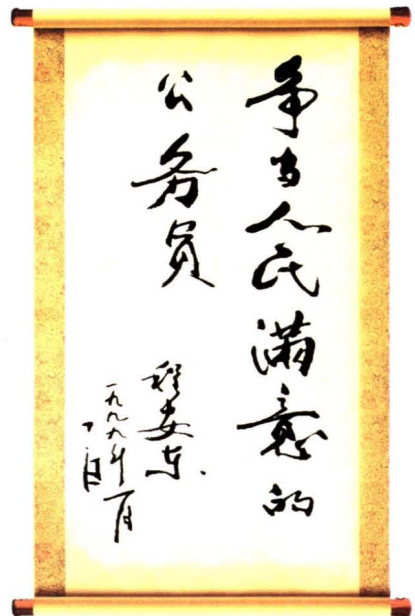 争当人民满意的
公务员
程安东
一九九九年一月